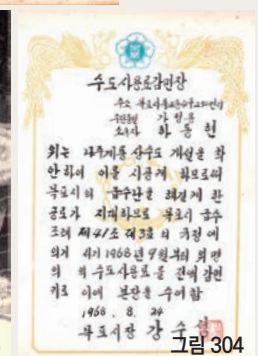 수도사용료감면장
주소 목포시
수전종별 가정용
소유자 하동현
위는 나주계통 상수도 개설을 착
안하여 이를 시공케 하므로써
목포시의 급수난을 해결케 한
공로가 지대하므로 목포시 급수
조례 제41조 제3호의 규정에
의거 서기 1968년 9월부터 위 면
의 수도사용료를 전액 감면
키로 이에 본장을 수여함
1968. 8. 24
목포시장 강수성
그림 304